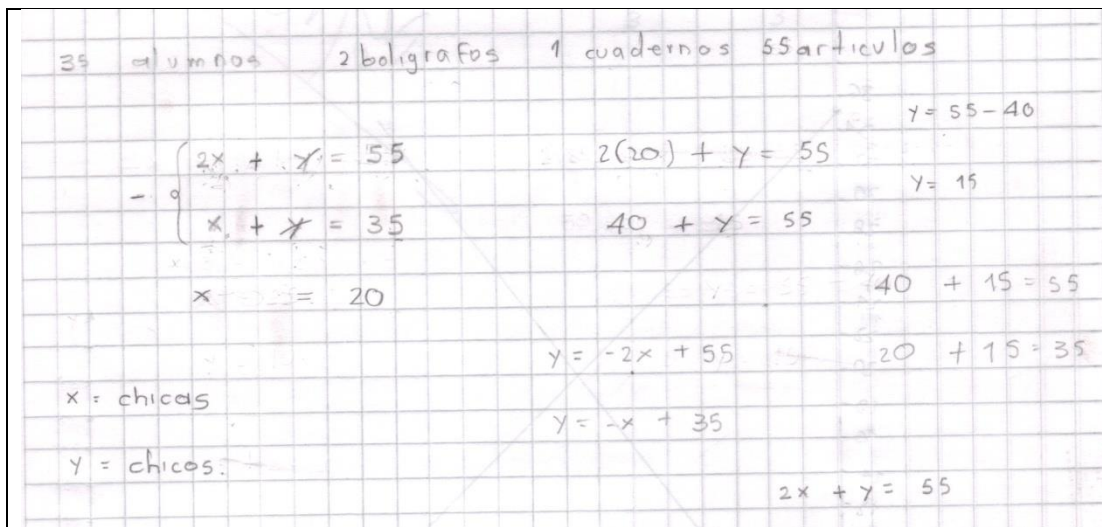 35 alumnos 2 boligrafos 1 cuadernos 55 articulos
y = 55 - 40
2x + y = 55
2(20) + y = 55
y = 15
-
x + y = 35
40 + y = 55
x = 20
40 + 15 = 55
y = -2x + 55
20 + 15 = 35
x = chicas
y = -x + 35
y = chicos.
2x + y = 55